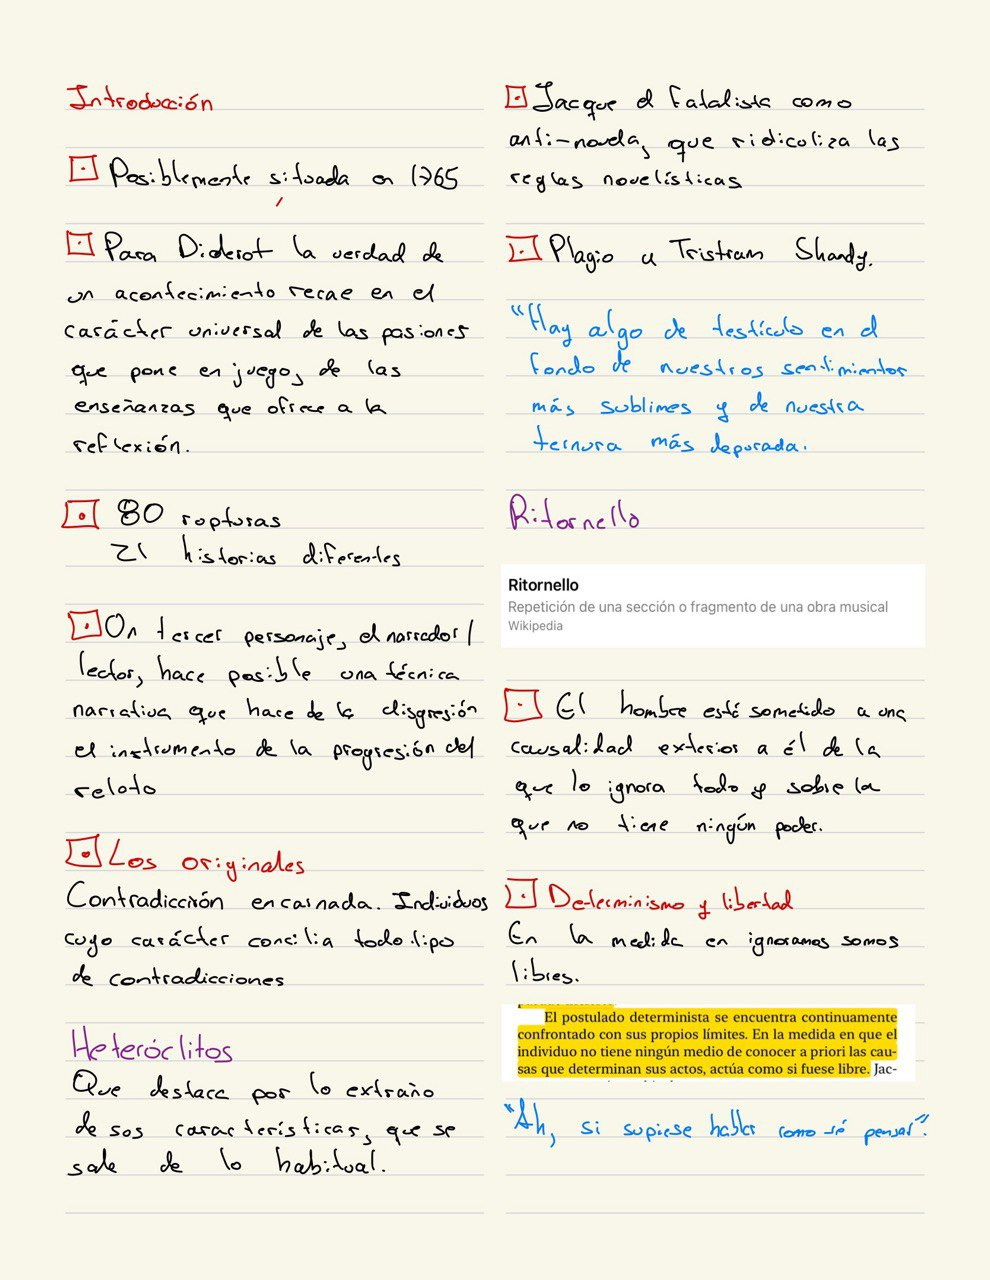 Introducción
Posiblemente situada en 1765
Para Diderot la verdad de
un acontecimiento recae en el
carácter universal de las pasiones
que pone en juego, de las
enseñanzas que ofrece a la
reflexión.
80 rupturas
21 historias diferentes
Un tercer personaje, el narrador/
lector, hace posible una técnica
narrativa que hace de la disgresión
el instrumento de la progresión del
relato
Los originales
Contradicción encarnada. Individuos
cuyo carácter concilia todo tipo
de contradicciones
Heteróclitos
Que destaca por lo extraño
de sus características, que se
sale de lo habitual.
Jacque el Fatalista como
anti-novela, que ridiculiza las
reglas novelísticas
Plagio a Tristram Shandy.
"Hay algo de testículo en el
fondo de nuestros sentimientos
más sublimes y de nuestra
ternura más depurada.
Ritornello
Ritornello
Repetición de una sección o fragmento de una obra musical
Wikipedia
El hombre está sometido a una
causalidad exterior a él de la
que lo ignora todo y sobre la
que no tiene ningún poder.
Determinismo y libertad
En la medida en ignoramos somos
libres.
El postulado determinista se encuentra continuamente
confrontado con sus propios límites. En la medida en que el
individuo no tiene ningún medio de conocer a priori las cau-
sas que determinan sus actos, actúa como si fuese libre. Jac-
"Ah, si supiese hablar como sé pensar".